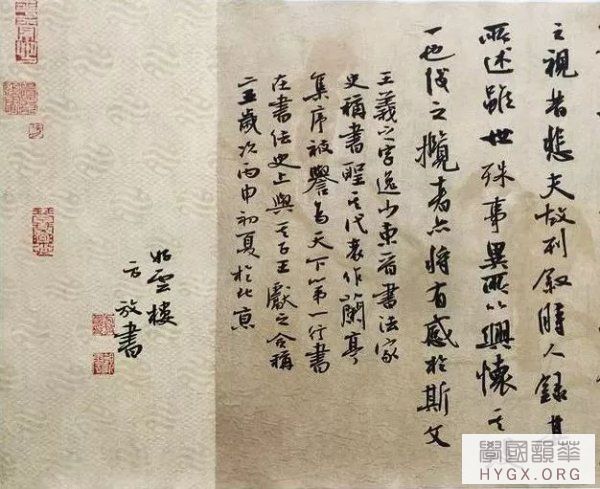 之視昔悲夫故列叙時人錄其
所述雖世殊事異所以興懷其
一也後之攬者亦將有感於斯文
王羲之字逸少東晉書法家
史稱書聖其代表作蘭亭
集序被譽為天下第一行書
在書法史上與其子王獻之合稱
二王歲次丙申初夏於北京
雲樓
方放書
學國韻華
HYGX.ORG